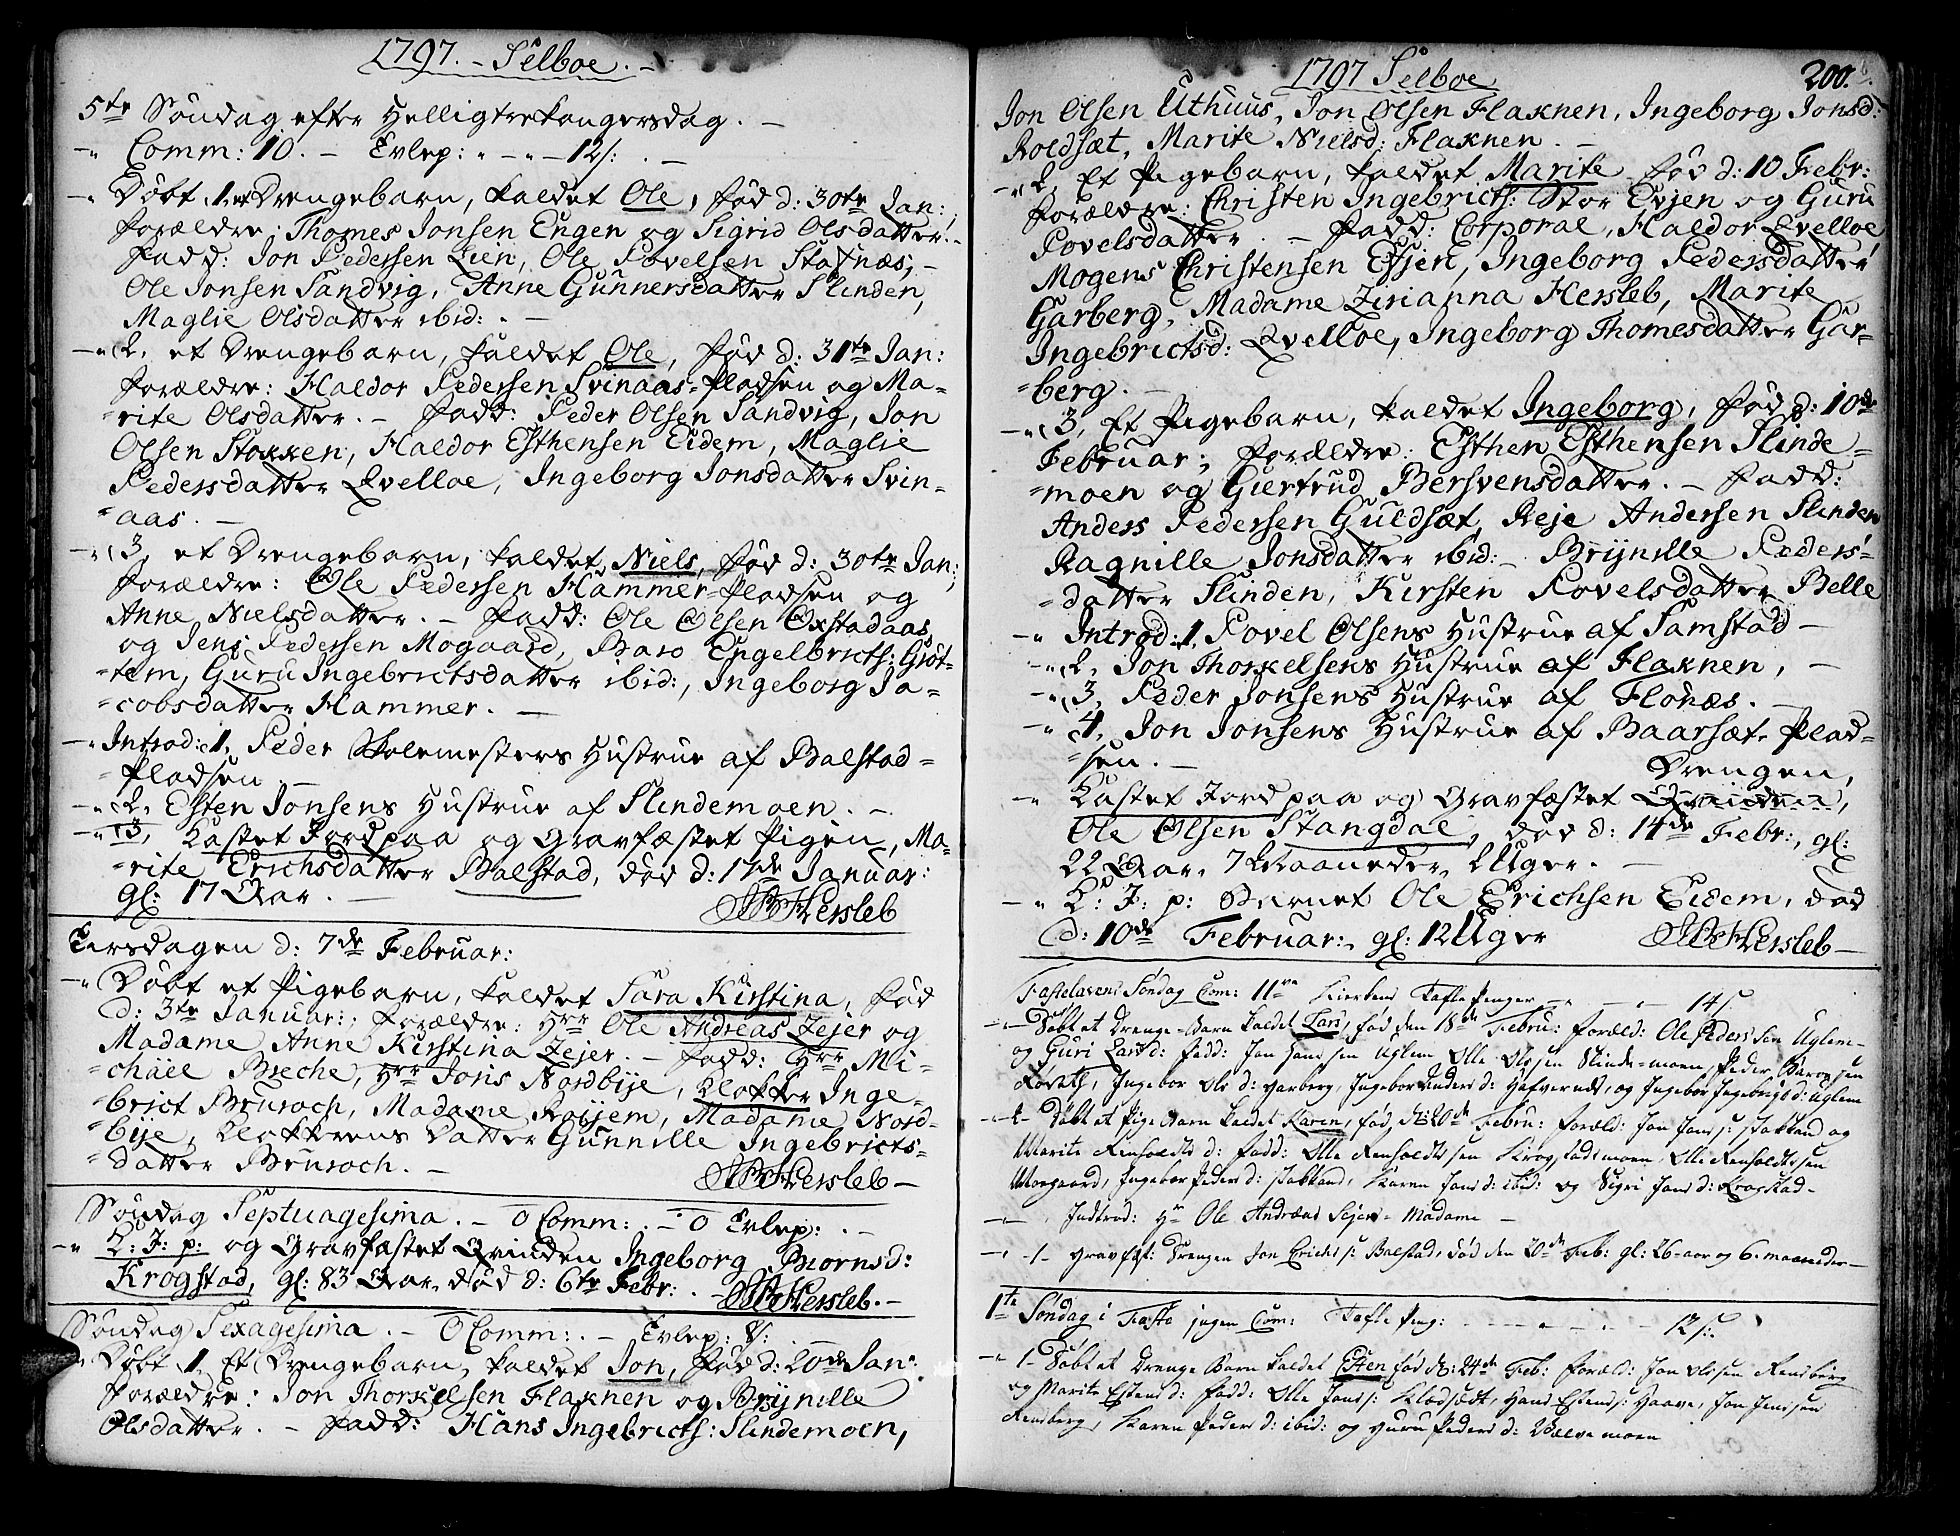 1797. - Selboe. -
5te Søndag efter Helligtrekongersdag. -
-" Comm: 10. - Evlep: " - " - 12 s: . -
-" Døbt 1, et Drengebarn, kaldet Ole, fød d: 30te Jan:,
Forældre: Thomes Jonsen Engen og Sigrid Olsdatter. -
Fadd: Jon Pedersen Lien, Ole Povelsen Stafnæs, -
Ole Jonsen Sandvig, Anne Gunnersdatter Slinden,
Maglie Olsdatter ibid: . -
-" 2, et Drengebarn, kaldet Ole, fød d: 31te Jan:
Forældre: Haldor Pedersen Svinaas-Pladsen og Ma-
-rite Olsdatter. - Fadd: Peder Olsen Sandvig, Jon
Olsen Stokken, Haldor Esthensen Eidem, Maglie
Pedersdatter Qvelloe, Ingeborg Jonsdatter Svin-
-aas. -
-" 3, et Drengebarn, kaldet Niels, fød d: 30te Jan:,
Forældre: Ole Pedersen Hammer-Pladsen og
Anne Nielsdatter. - Fadd: Ole Olsen Oxstadaas
og Jens Pedersen Mogaard, Baro Engelbricts: Grøt-
-tem, Guru Ingebrictsdatter ibid:, Ingeborg Ja-
-cobsdatter Hammer. -
-" Introd: 1, Peder Skolemesters Hustrue af Balstad-
-Pladsen. -
-" 2, Esten Jonsens Hustrue af Slindemoen. -
-" 3, Kastet Jord paa og Gravfæstet Pigen, Ma-
-rite Erichsdatter Balstad, død d: 17de Januar:
gl: 17 Aar. - Hersleb
Tirsdagen d: 7de Februar:
-" Døbt et Pigebarn, kaldet Sara Kirstina, fød
d: 3te Januar:, Forældre: Hrr Ole Andreas Zejer og
Madame Anne Kirstina Zejer. - Fadd: Hrr Mi-
-chäel Breche, Hrr Joris Nordbye, Klokker Inge-
-brict Brüroch, Madame Roijem, Madame Nord-
-bÿe, Klokkerens Datter Gunnille Ingebricts-
-datter Brüroch. -
Hersleb -
Søndag Septuagesima. - 0 Comm: . - 0 Evlep: . -
-" K: J: p: og Gravfæstet Qvinden Ingeborg Biornsd:
Krogstad, gl: 83 Aar, død d: 6te Febr: . Hersleb. -
Søndag Sexagesima. - 0 Comm: . - Evlep: 8: . -
-" Døbt 1, Et Drengebarn, kaldet Jon, fød d: 20de Jan:
Forældre: Jon Thorkelsen Flaknen og Brÿnille
Olsdatter. - Fadd: Hans Ingebricts: Slindemoen,
1797 Selboe
200.
Jon Olsen Uthuus, Jon Olsen Flaknen, Ingeborg Jonsd:
Roldsæt, Marite Nielsd: Flaknen. -
-" 2, Et Pigebarn, kaldet Marite, fød d: 10 Febr:
Forældre: Christen Ingebricts: Stor Evjen og Guru
Povelsdatter. - Fadd: Corporal, Haldor Qvelloe
Mogens Christensen Efjen, Ingeborg Pedersdatter
Garberg, Madame Zirianna Hersleb, Marite
Ingebrictsd: Qvelloe, Ingeborg Thomesdatter Gar-
-berg. -
-" 3, Et Pigebarn, kaldet Ingeborg, fød d: 10de
Februar; Forældre: Esthen Esthensen Slinde-
-moen og Giertrud Bersvensdatter. - Fadd:
Anders Pedersen Guldsæt, Reje Andersen Slinden
Ragnille Jonsdatter ibid: - Brÿnille Peders-
-datter Slinden, Kirsten Povelsdatter Belle
-" Introd: 1, Povel Olsens Hustrue af Samstad -
-" 2, Jon Thorkelsens Hustrue af Flaknen, -
-" 3, Peder Jonsens Hustrue af Flonæs. -
-" 4, Jon Jonsens Hustrue af Baarsæt-Plad-
-sen. -
Drengen,
-" Kastet Jord paa og Gravfæstet Qvinden,
Ole Olsen Stangdal, død d: 14de Febr:, gl:
22 Aar, 7 Maaneder, 2 Uger. -
-" K: J: p: Barnet Ole Erichsen Eidem, død
d: 10de Februar:, gl: 12 Uger Hersleb -
Fastelavens Søndag Com: 11ve Kierkens Tafle Penger - " - " - 14 s
-"- Døbt et Drenge-Barn kaldet Lars, fød den 18de Febru: Foræld: Ole Peders Søn Uglem-
og Guri Larsd: Fadd: Jon Jons sen Uglem Olle Olssen Slinde-moen, Peder Baroe sen
Rørvth, Ingebor Ols d: Garberg, Ingebor Anders d: Hafvernæs, og Ingebor Ingebrigs d: Uglem
- Døbt et Pige Barn kaldet Karen, fød d: 20de Febru: Foræld: Jon Jons s: Stokkand og
Marite Renholdts d: Fadd: Olle Renholdts sen Krogstadsmoen, Olle Renholdtssen
Morgaard, Ingebor Peders d: Stokkand, Karen Jons d: ibid: og Sigri Jons d: Krogstad -
-"- Indtrod: Hr Ole Andreas Sejers Madame -
-" 1 - Gravfæst: Drengen Jon Erichs s: Balstad, død den 20de Feb: gl: 26-aar og 6-maaneder -
1te Søndag i Faste ingen Com: Tafle Peng: - - - " - " - 12 s:
-" 1 - Døbt et Drenge Barn kaldet Esten fød d: 24de Feb: Foræld: Jon Olssen Rensberg
og Marite Estens d: Fadd: Olle Jons s: Klodsædt, Hans Estens s: Haave, Jon Jenssen
Rensberg, Karen Peders d: ibid: og Guru Peders d: Qvelvemoen